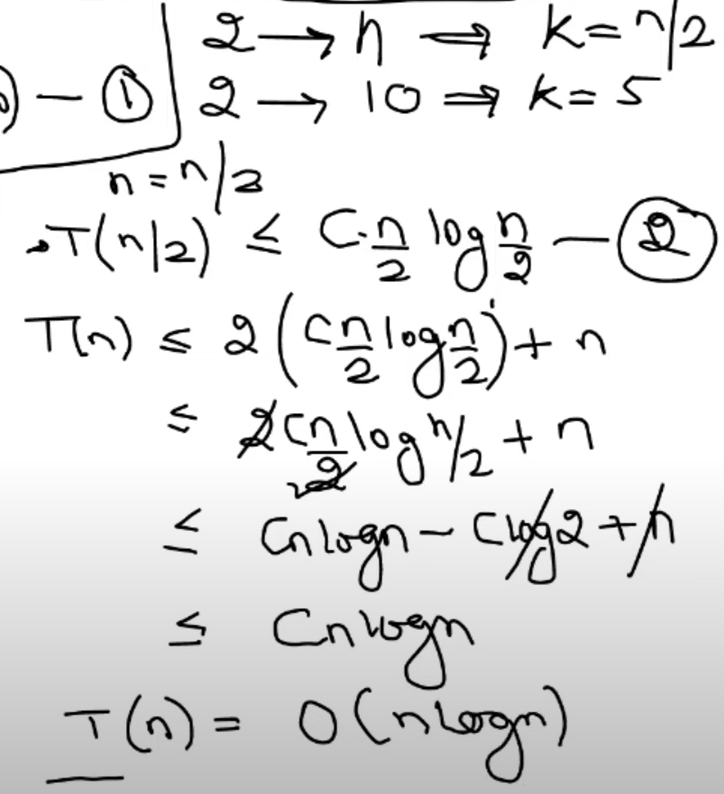 2 → n ⟹ k = n/2
) — ① 2 → 10 ⟹ k = 5
n = n/2
T(n/2) ≤ C·n/2 log n/2 — ②
T(n) ≤ 2(Cn/2 log n/2) + n
≤ 2Cn/2 log n/2 + n
≤ Cn logn − C log 2 + n
≤ Cn logn
T(n) = O(n logn)